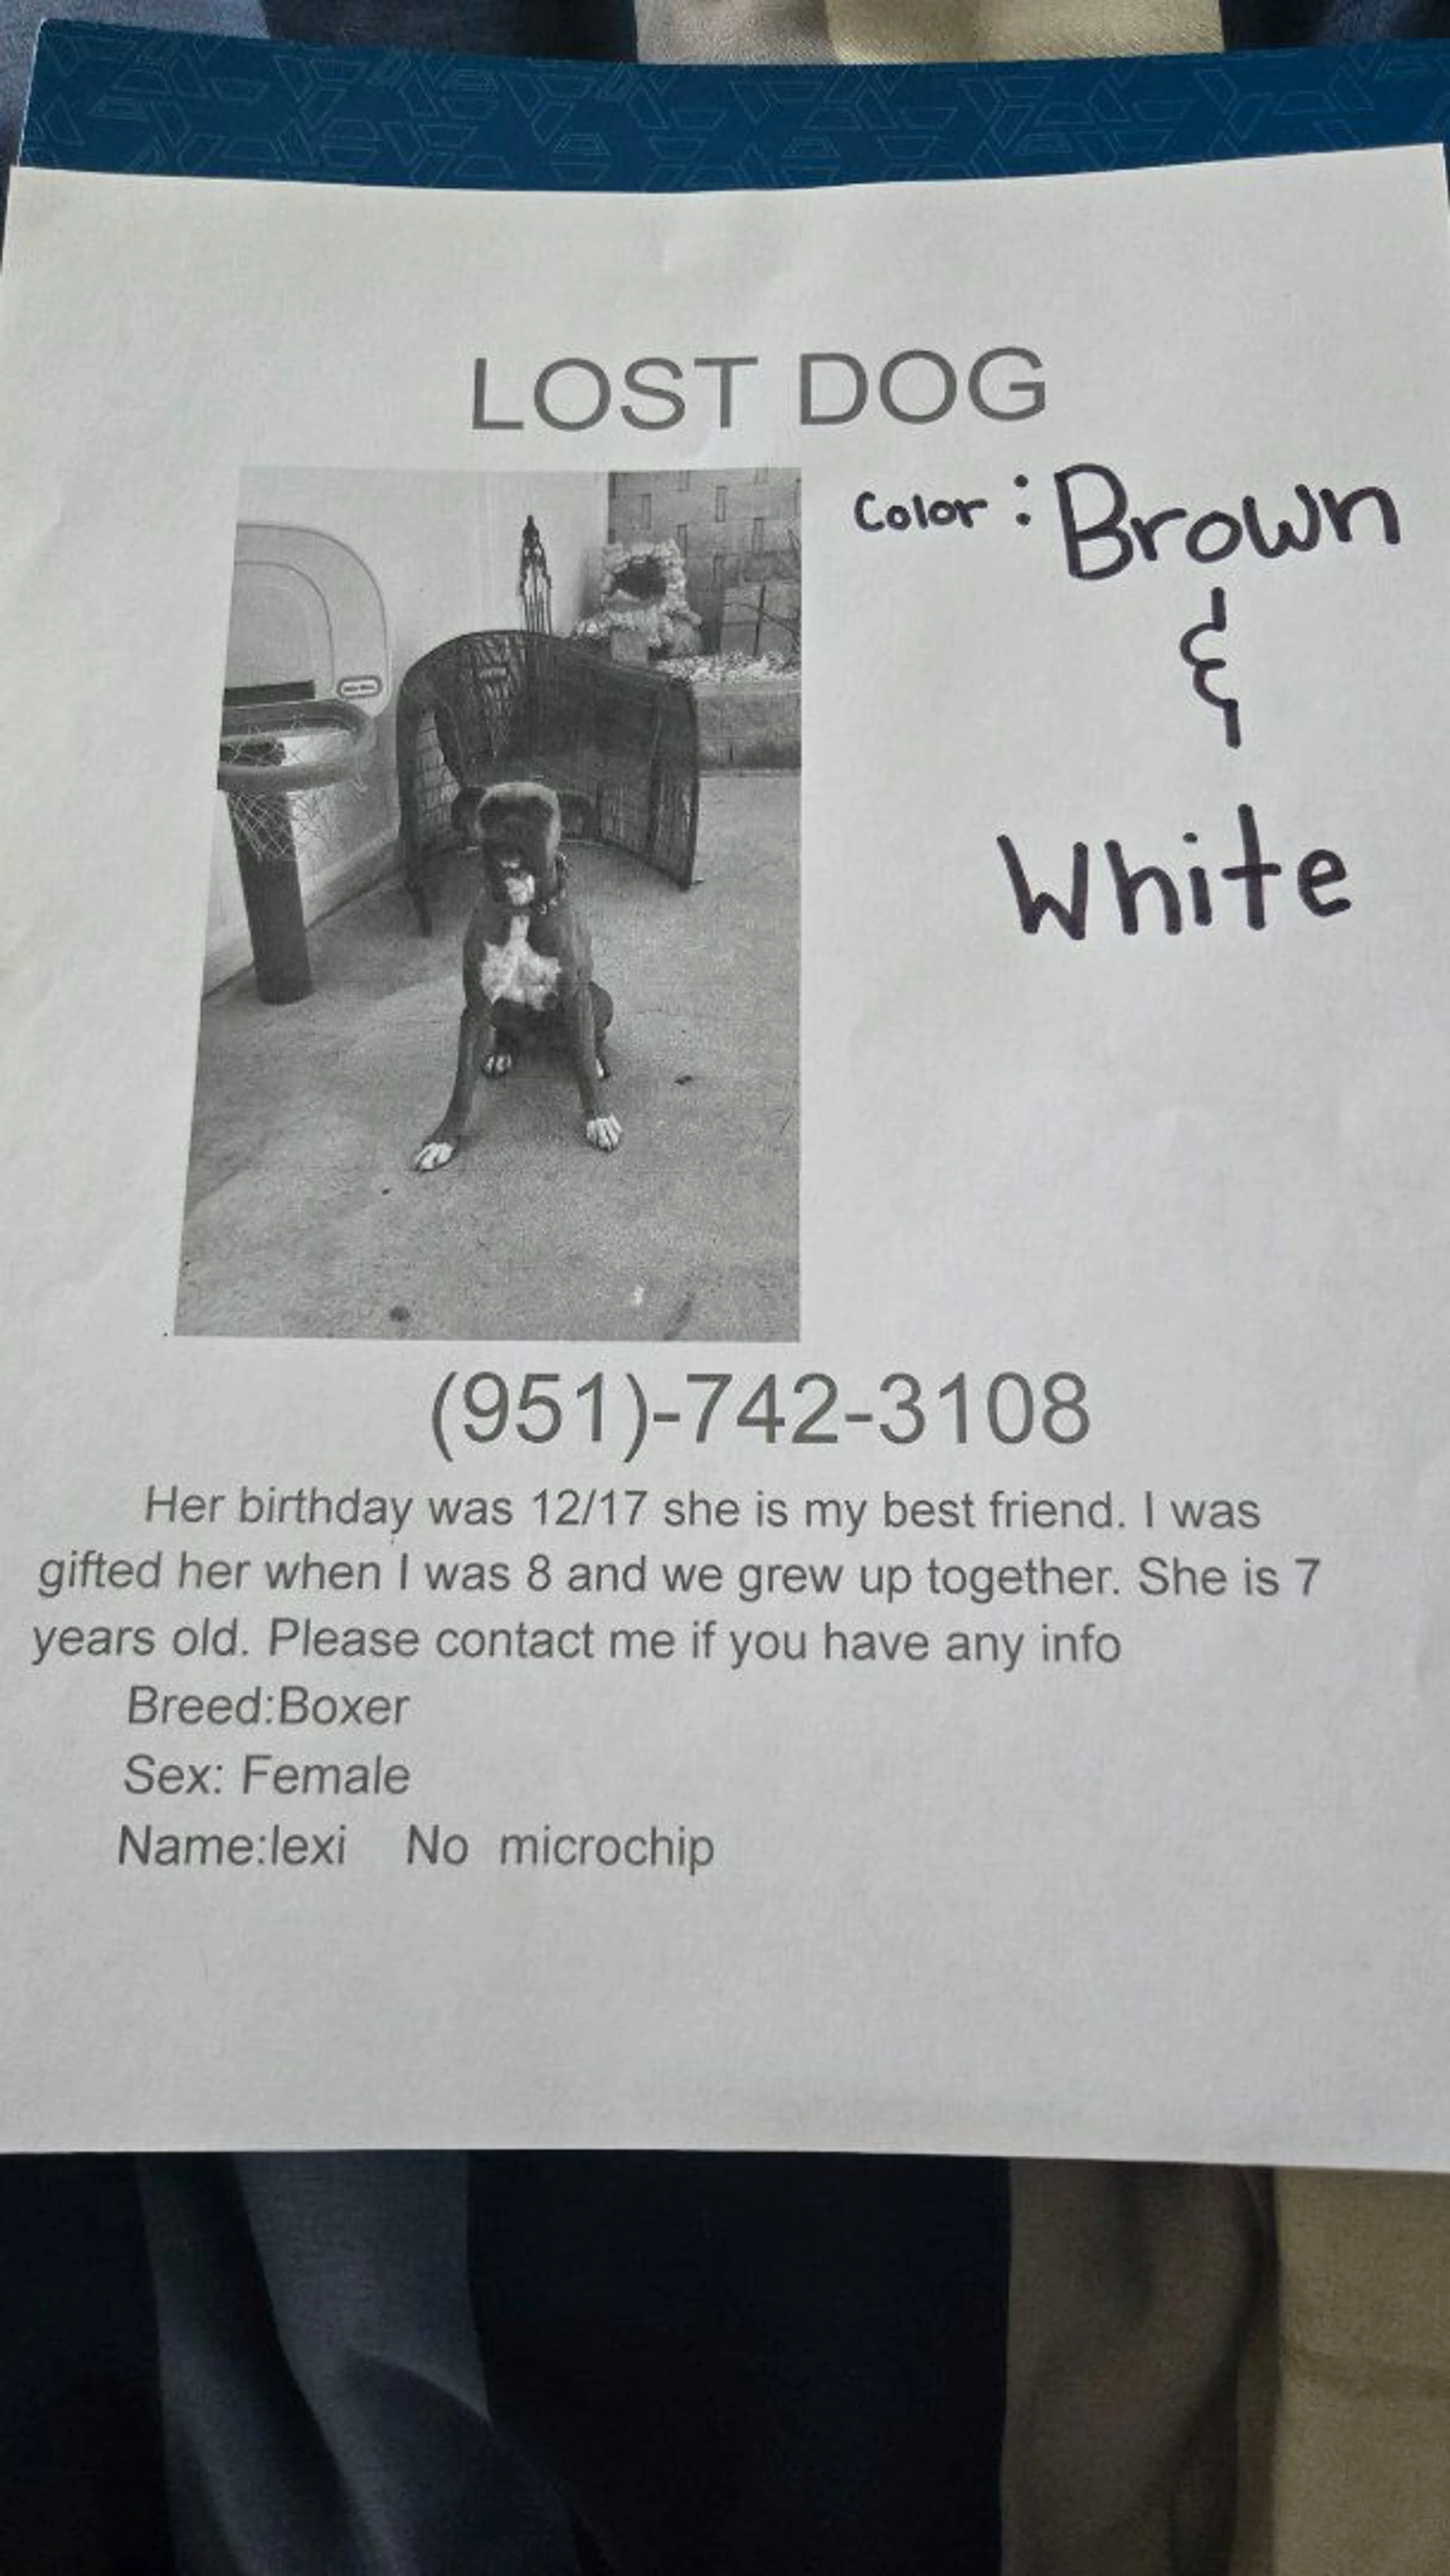 LOST DOG
Color: Brown
&
White
(951)-742-3108
Her birthday was 12/17 she is my best friend. I was
gifted her when I was 8 and we grew up together. She is 7
years old. Please contact me if you have any info
Breed:Boxer
Sex: Female
Name:lexi No microchip